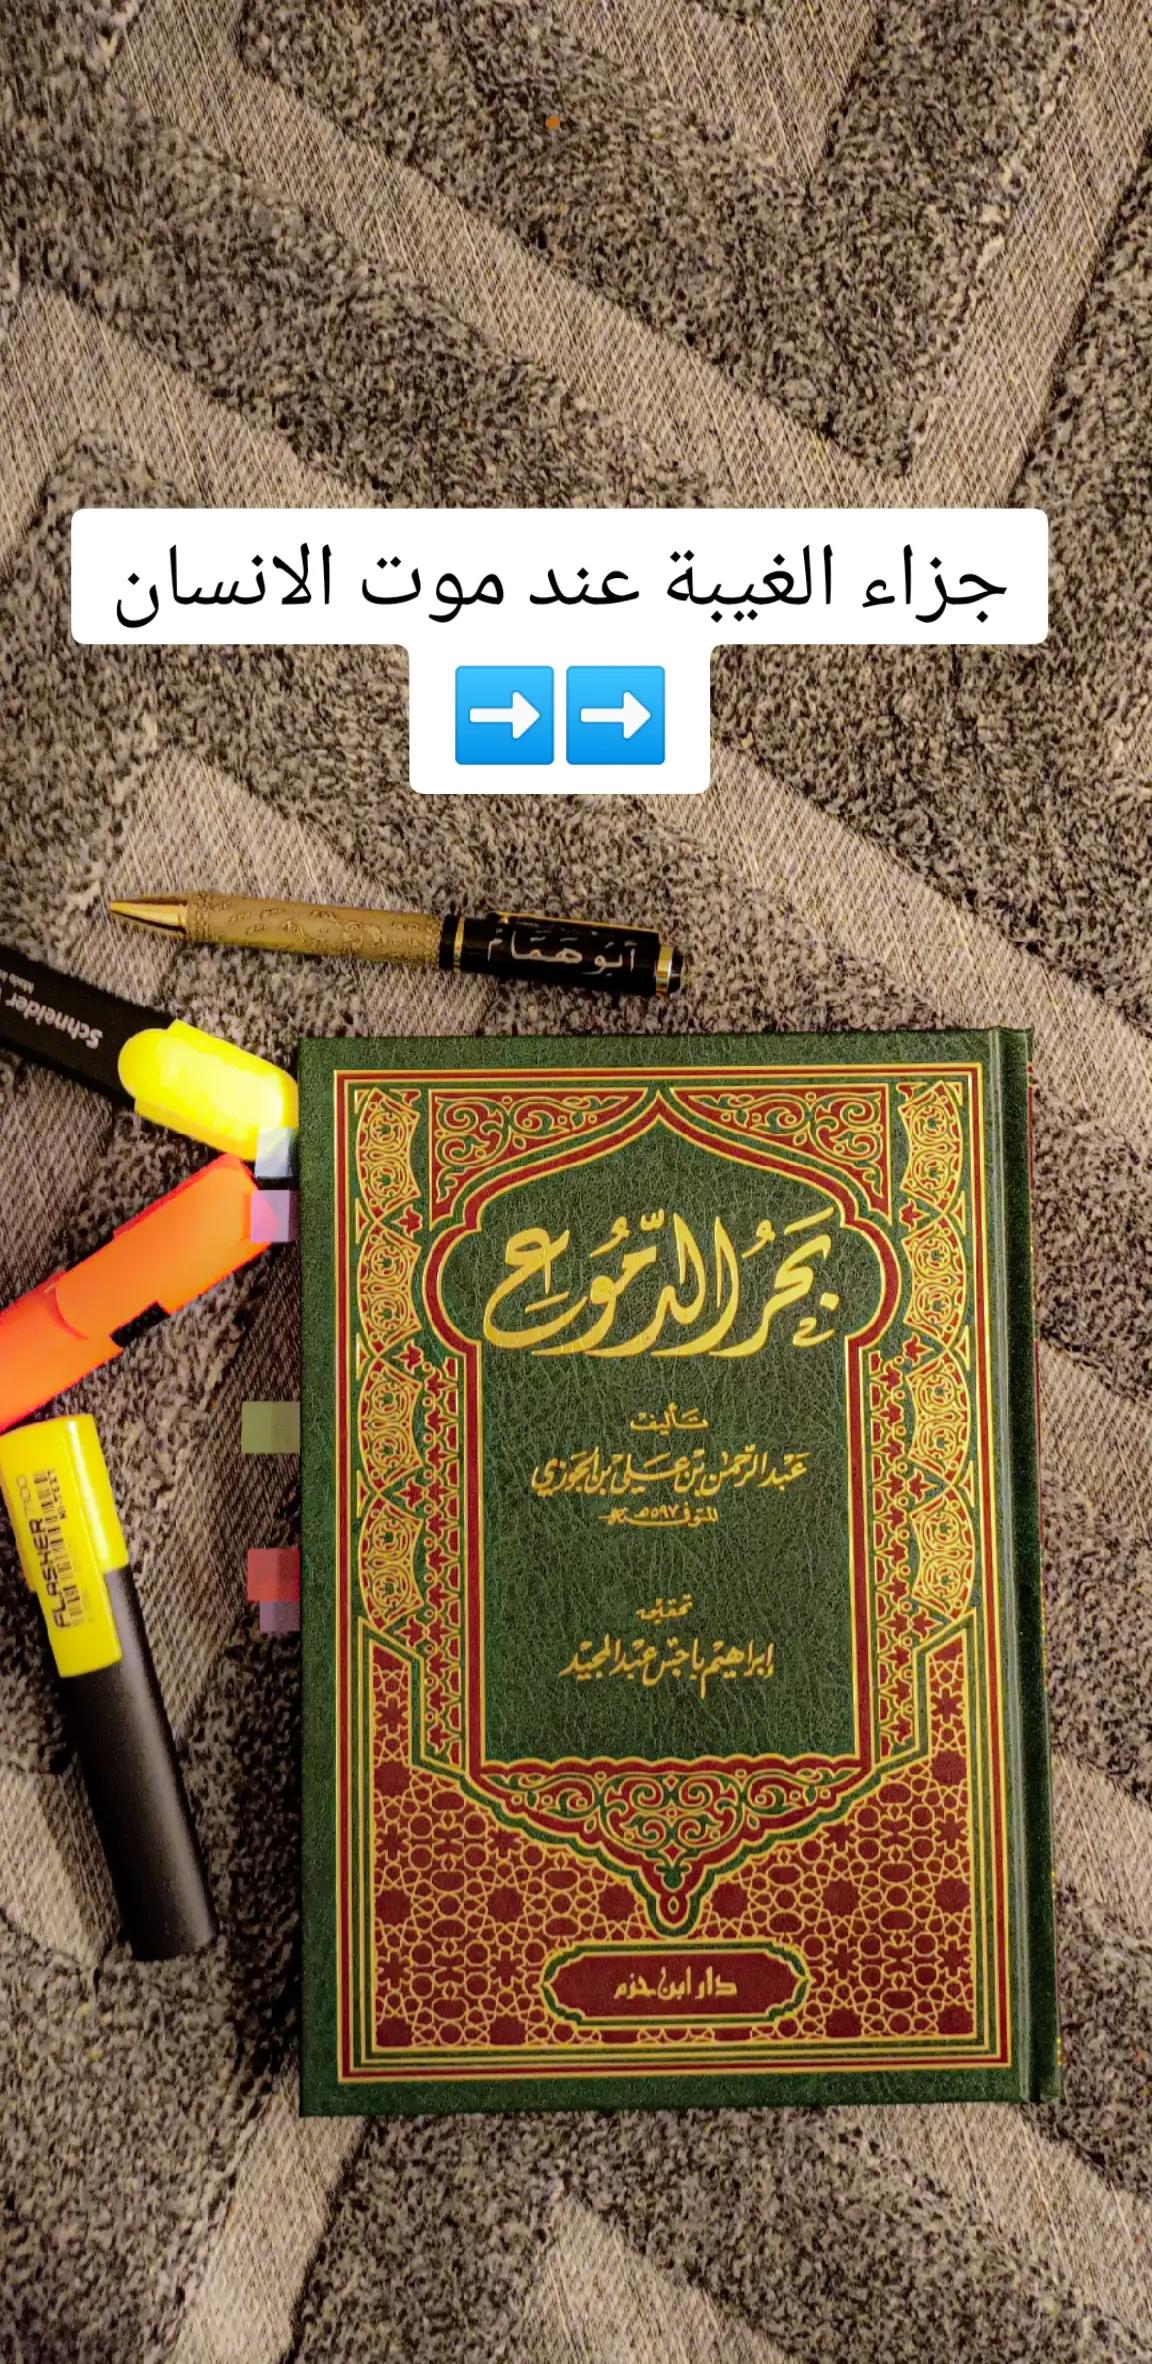 جزاء الغيبة عند موت الانسان
➡️➡️
أبو همام
Schneider
بحر الدموع
تأليف
عبد الرحمن بن علي بن الجوزي
المتوفى ٥٩٧هـ
تحقيق
إبراهيم باجس عبد المجيد
FLASHER 7100
دار ابن حزم